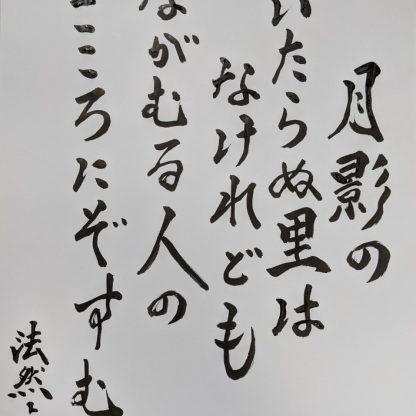 月影の
いたらぬ里は
なけれども
ながむる人の
こころにぞすむ
法然